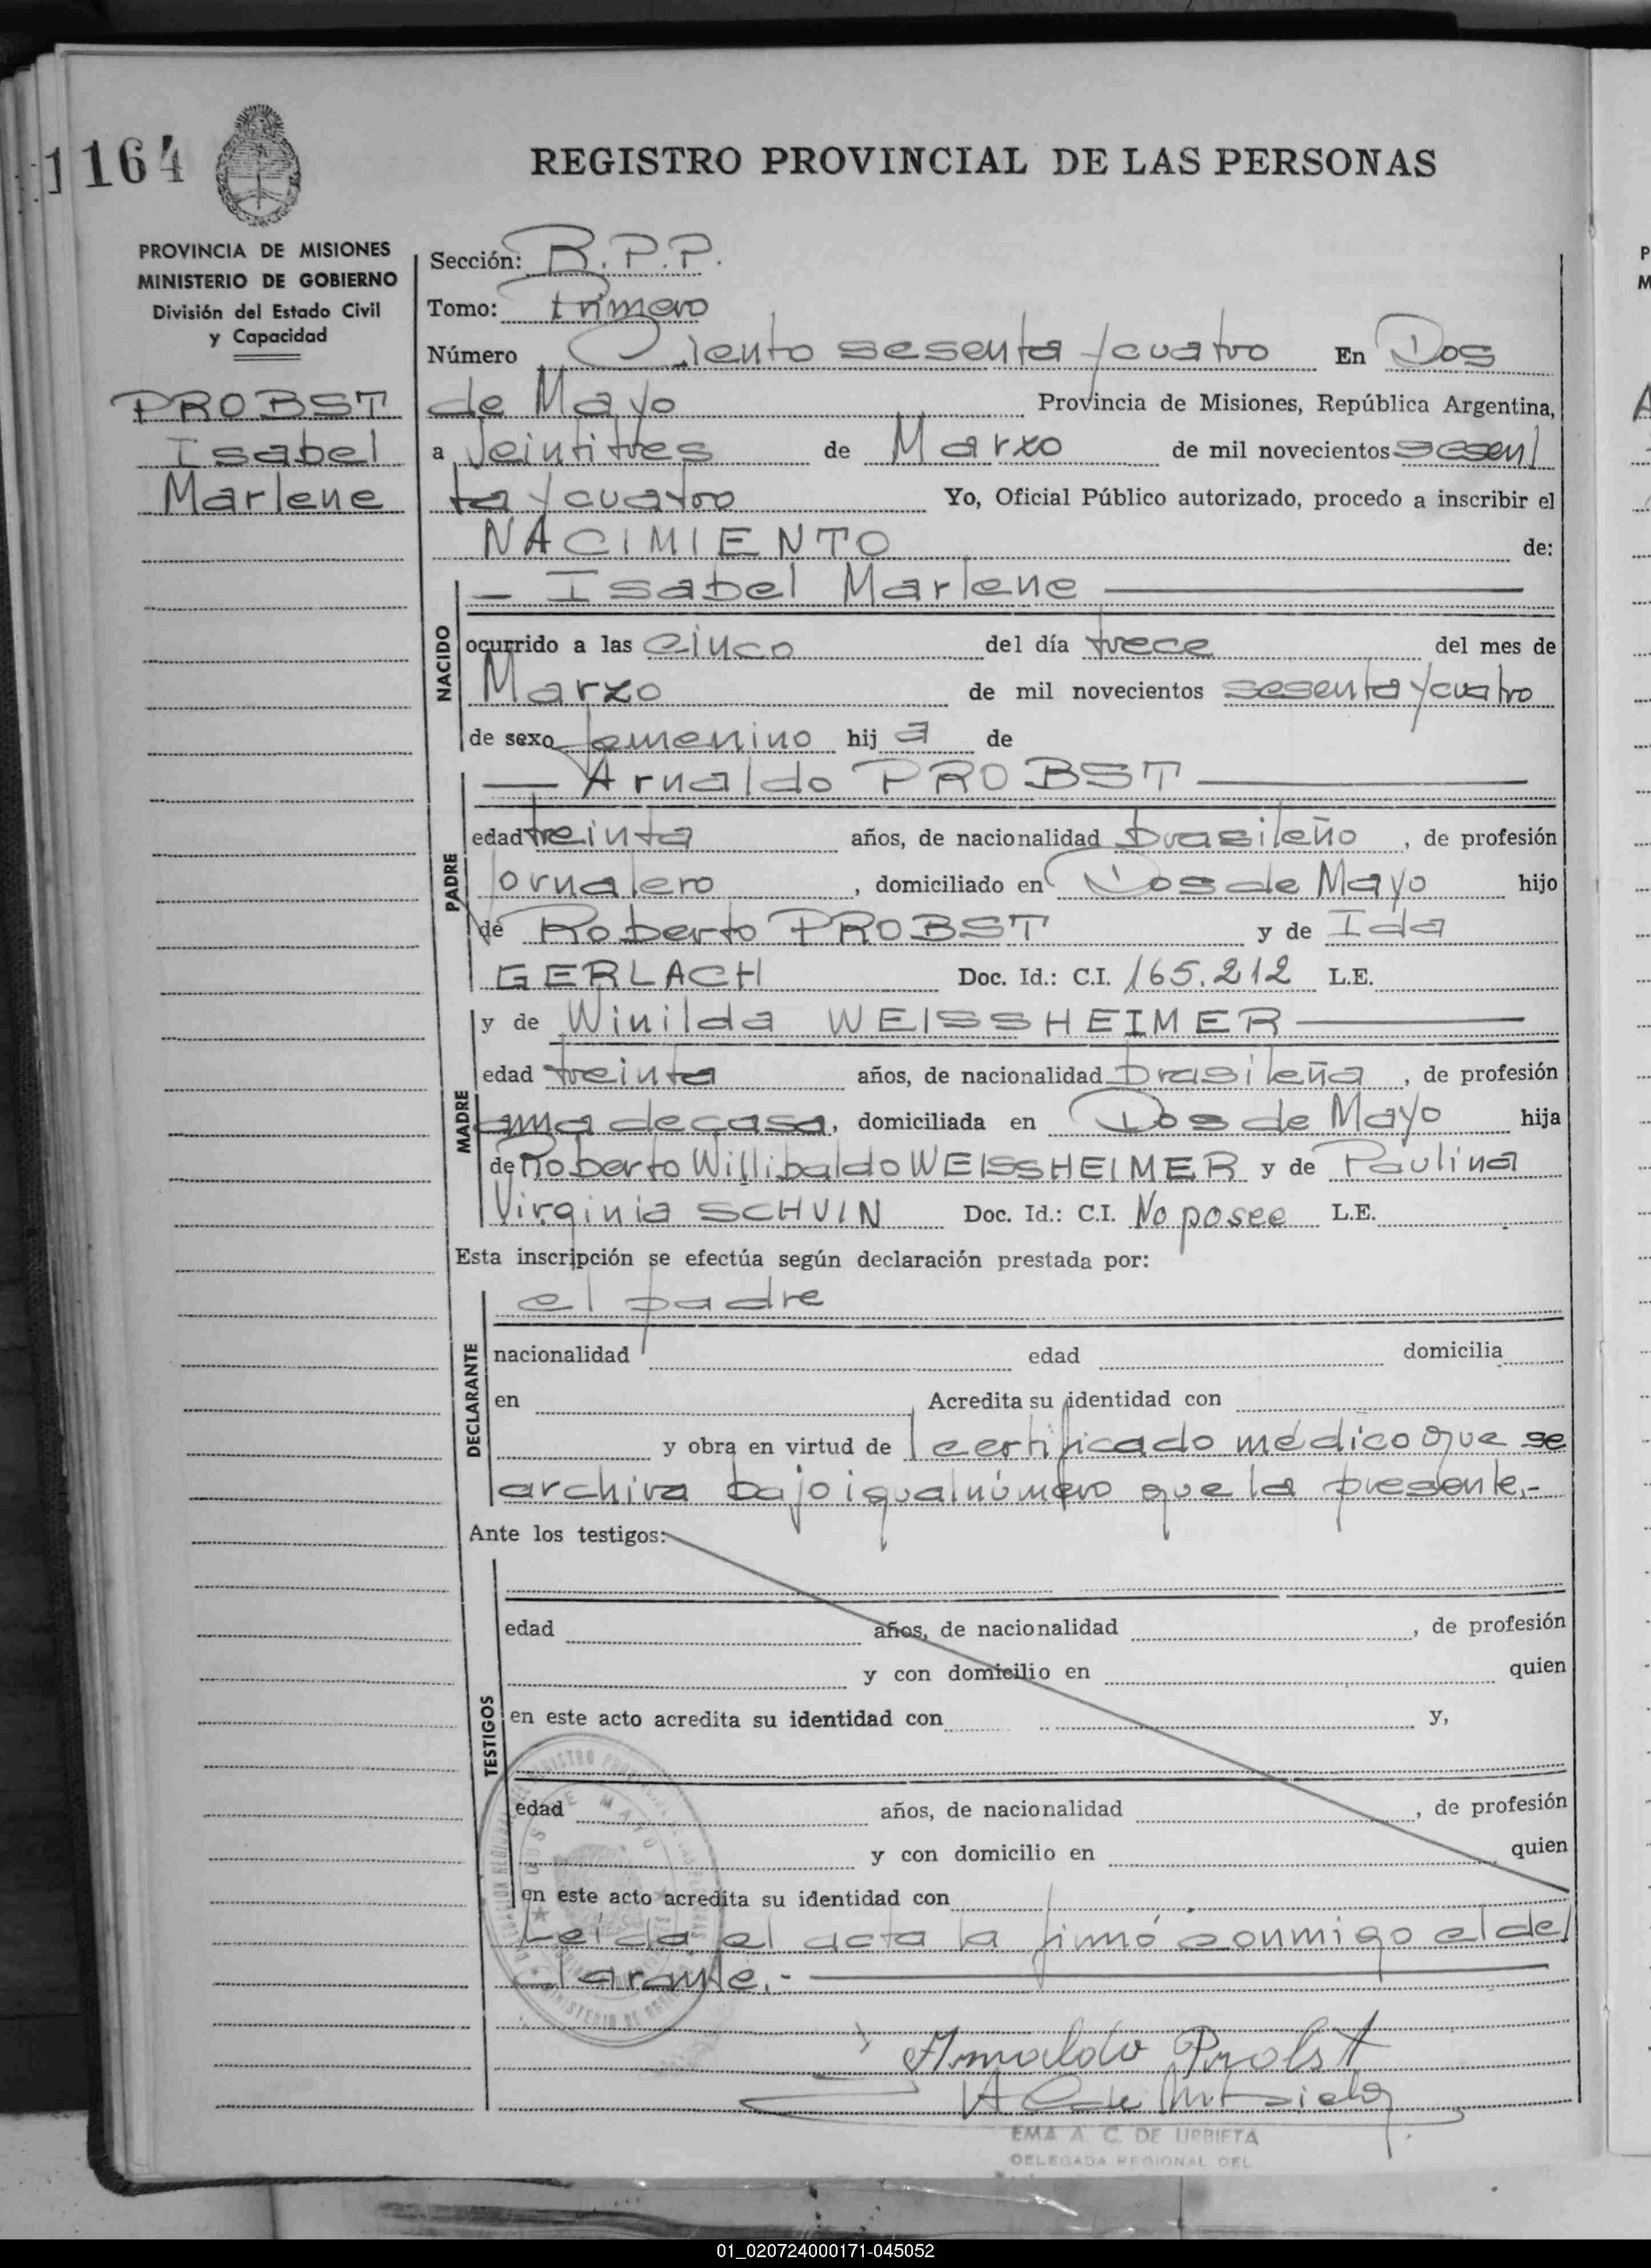 1164
REGISTRO PROVINCIAL DE LAS PERSONAS
PROVINCIA DE MISIONES
MINISTERIO DE GOBIERNO
División del Estado Civil
y Capacidad
PROBST
Isabel
Marlene
Sección: R.P.P.
Tomo: Primero
Número Ciento sesenta y cuatro En Dos
de Mayo Provincia de Misiones, República Argentina,
a Veintitres de Marzo de mil novecientos sesen/
ta y cuatro Yo, Oficial Público autorizado, procedo a inscribir el
NACIMIENTO de:
NACIDO
— Isabel Marlene —
ocurrido a las cinco del día trece del mes de
Marzo de mil novecientos sesenta y cuatro
de sexo femenino hij a de
PADRE
— Arnaldo PROBST —
edad treinta años, de nacionalidad brasileño, de profesión
Jornalero, domiciliado en Dos de Mayo hijo
de Roberto PROBST y de Ida
GERLACH Doc. Id.: C.I. 165.212 L.E.
MADRE
y de Winilda WEISSHEIMER —
edad treinta años, de nacionalidad brasileña, de profesión
ama de casa, domiciliada en Dos de Mayo hija
de Roberto Willibaldo WEISSHEIMER y de Paulina
Virginia SCHUIN Doc. Id.: C.I. No posee L.E.
Esta inscripción se efectúa según declaración prestada por:
DECLARANTE
el padre
nacionalidad edad domicilia
en Acredita su identidad con
y obra en virtud de certificado médico que se
archiva bajo igual número que la presente.-
Ante los testigos:
TESTIGOS
edad años, de nacionalidad , de profesión
y con domicilio en quien
en este acto acredita su identidad con y,
edad años, de nacionalidad , de profesión
y con domicilio en quien
en este acto acredita su identidad con
Leída el acta la firmó conmigo el de/
clarante.- —
Arnaldo Probst
EMA A. C. DE URBIETA
DELEGADA REGIONAL DEL
01_020724000171-045052